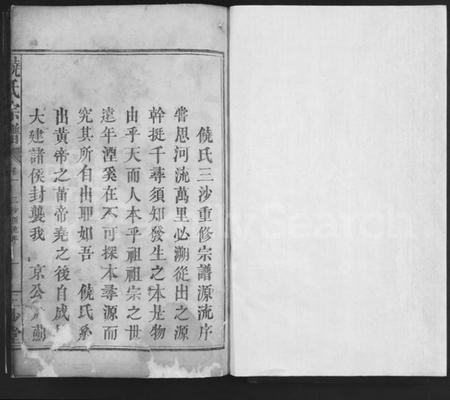 饒氏三沙重修宗譜源流序
嘗思河流萬里必溯從出之源
幹挺千尋須知發生之本是物
由乎天而人本乎祖祖宗之世
遠年湮奚在不可探本尋源而
究其所自出耶如吾 饒氏系
出黃帝之苗帝堯之後自成周
大建諸侯封襲我 京公
饒氏宗譜